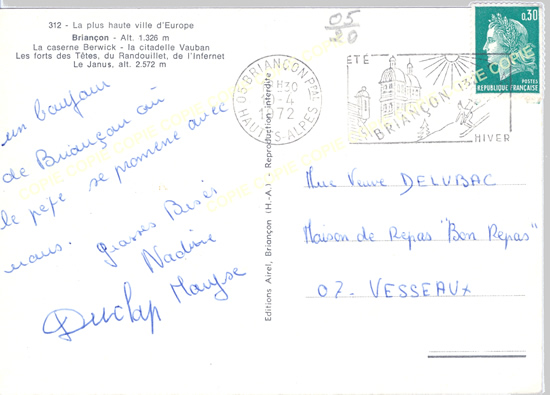 312 - La plus haute ville d'Europe
Briançon - Alt. 1.326 m
La caserne Berwick - la citadelle Vauban
Les forts des Têtes, du Randouillet, de l'Infernet
Le Janus, alt. 2.572 m
un bonjour
de Briançon où
le pépé se promène avec
nous. Grosses Bises
Nadine
Maryse
Duclap
Editions Airel, Briançon (H.-A.) - Reproduction interdite
05
20
05 BRIANÇON PPAL
H30
-4
1972
HAUTES-ALPES
ETE
BRIANÇON 1326
HIVER
0,30
REPUBLIQUE FRANÇAISE
Mme Veuve DELUBAC
Maison de Repas "Bon Repas"
07- VESSEAUX
COPIE COPIE COPIE COPIE